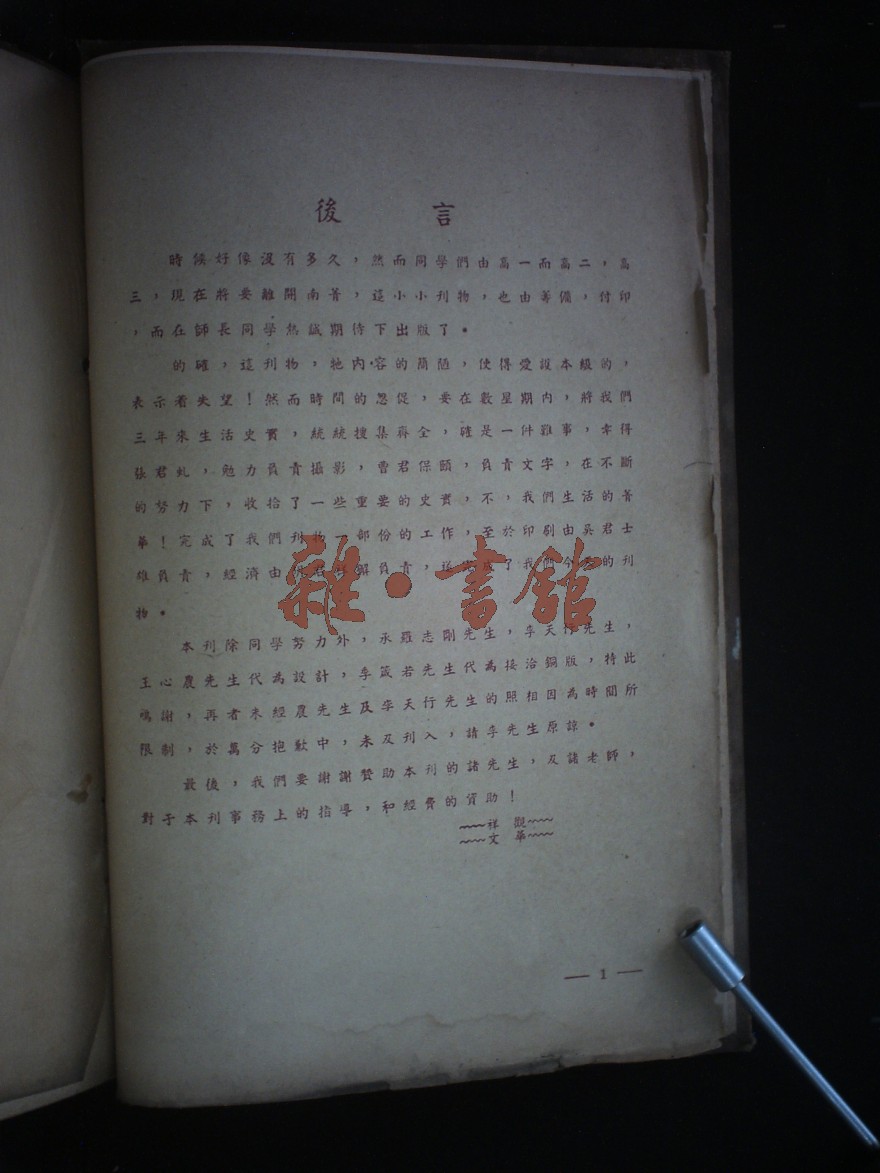 後言
時候好像沒有多久，然而同學們由高一而高二，高
三，現在將要離開南菁，這小小刊物，也由籌備，付印
，而在師長同學熱誠期待下出版了。
的確，這刊物，牠內容的簡陋，使得愛護本級的，
表示着失望！然而時間的忽促，要在數星期內，將我們
三年來生活史實，統統搜集齊全，確是一件難事，幸得
張君虬，勉力負責攝影，曹君保頤，負責文字，在不斷
的努力下，收拾了一些重要的史實，不，我們生活的菁
華！完成了我們刊物一部份的工作，至於印刷由吳君士
雄負責，經濟由負責，了我們今的刊
物。
本刊除同學努力外，承羅志剛先生，李天行先生，
王心農先生代為設計，李箴若先生代為接洽銅版，特此
鳴謝，再者朱經農先生及李天行先生的照相因為時間所
限制，於萬分抱歉中，未及刊入，請李先生原諒。
最後，我們要謝謝贊助本刊的諸先生，及諸老師，
對于本刊事務上的指導，和經費的資助！
~~~~祥觀~~~~
~~~~文華~~~~
— 1 —
雜·書館